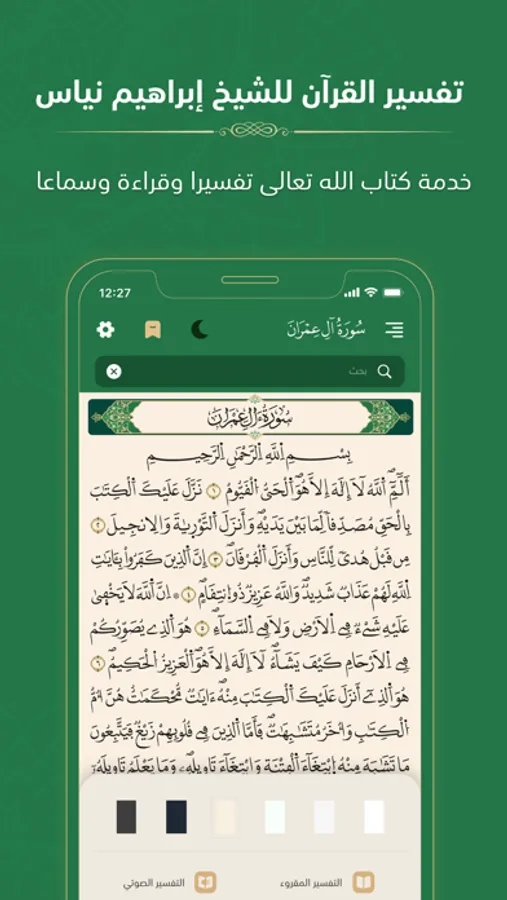 تفسير القرآن للشيخ إبراهيم نياس
خدمة كتاب الله تعالى تفسيرا وقراءة وسماعا
12:27
سُورَةُ آلِ عِمْرَانَ
بحث
سُورَةُ ءَالِ عِمْرَانَ
بِسْمِ اِللَّهِ اِلرَّحْمَٰنِ اِلرَّحِيمِ
أَلَٓمِّٓ اَللَّهُ لَآ إِلَٰهَ إِلَّا هُوَ اَلْحَيُّ اُلْقَيُّومُ ١ نَزَّلَ عَلَيْكَ اَلْكِتَٰبَ
بِالْحَقِّ مُصَدِّقاً لِّمَا بَيْنَ يَدَيْهِ وَأَنزَلَ اَلتَّوْرَيٰةَ وَالِانجِيلَ ٢
مِن قَبْلُ هُدىً لِّلنَّاسِ وَأَنزَلَ اَلْفُرْقَانَ ٣ إِنَّ اَلذِينَ كَفَرُواْ بِـَٔايَٰتِ
اِللَّهِ لَهُمْ عَذَابٌ شَدِيدٌ وَاللَّهُ عَزِيزٌ ذُو اُنتِقَامٍ ٤ إِنَّ اَللَّهَ لَا يَخْفَىٰ
عَلَيْهِ شَےْءٌ فِے اِلَارْضِ وَلَا فِے اِلسَّمَآءِ ٥ هُوَ اَلذِے يُصَوِّرُكُمْ
فِے اِلَارْحَامِ كَيْفَ يَشَآءُ لَآ إِلَٰهَ إِلَّا هُوَ اَلْعَزِيزُ اُلْحَكِيمُ ٦
هُوَ اَلذِےٓ أَنزَلَ عَلَيْكَ اَلْكِتَٰبَ مِنْهُ ءَايَٰتٌ مُّحْكَمَٰتٌ هُنَّ أُمُّ
اُلْكِتَٰبِ وَأُخَرُ مُتَشَٰبِهَٰتٌ فَأَمَّا اَلذِينَ فِے قُلُوبِهِمْ زَيْغٌ فَيَتَّبِعُونَ
مَا تَشَٰبَهَ مِنْهُ اُبْتِغَآءَ اَلْفِتْنَةِ وَابْتِغَآءَ تَاوِيلِهِۦ وَمَا يَعْلَمُ تَاوِيلَهُۥٓ
التفسير المقروء
التفسير الصوتي